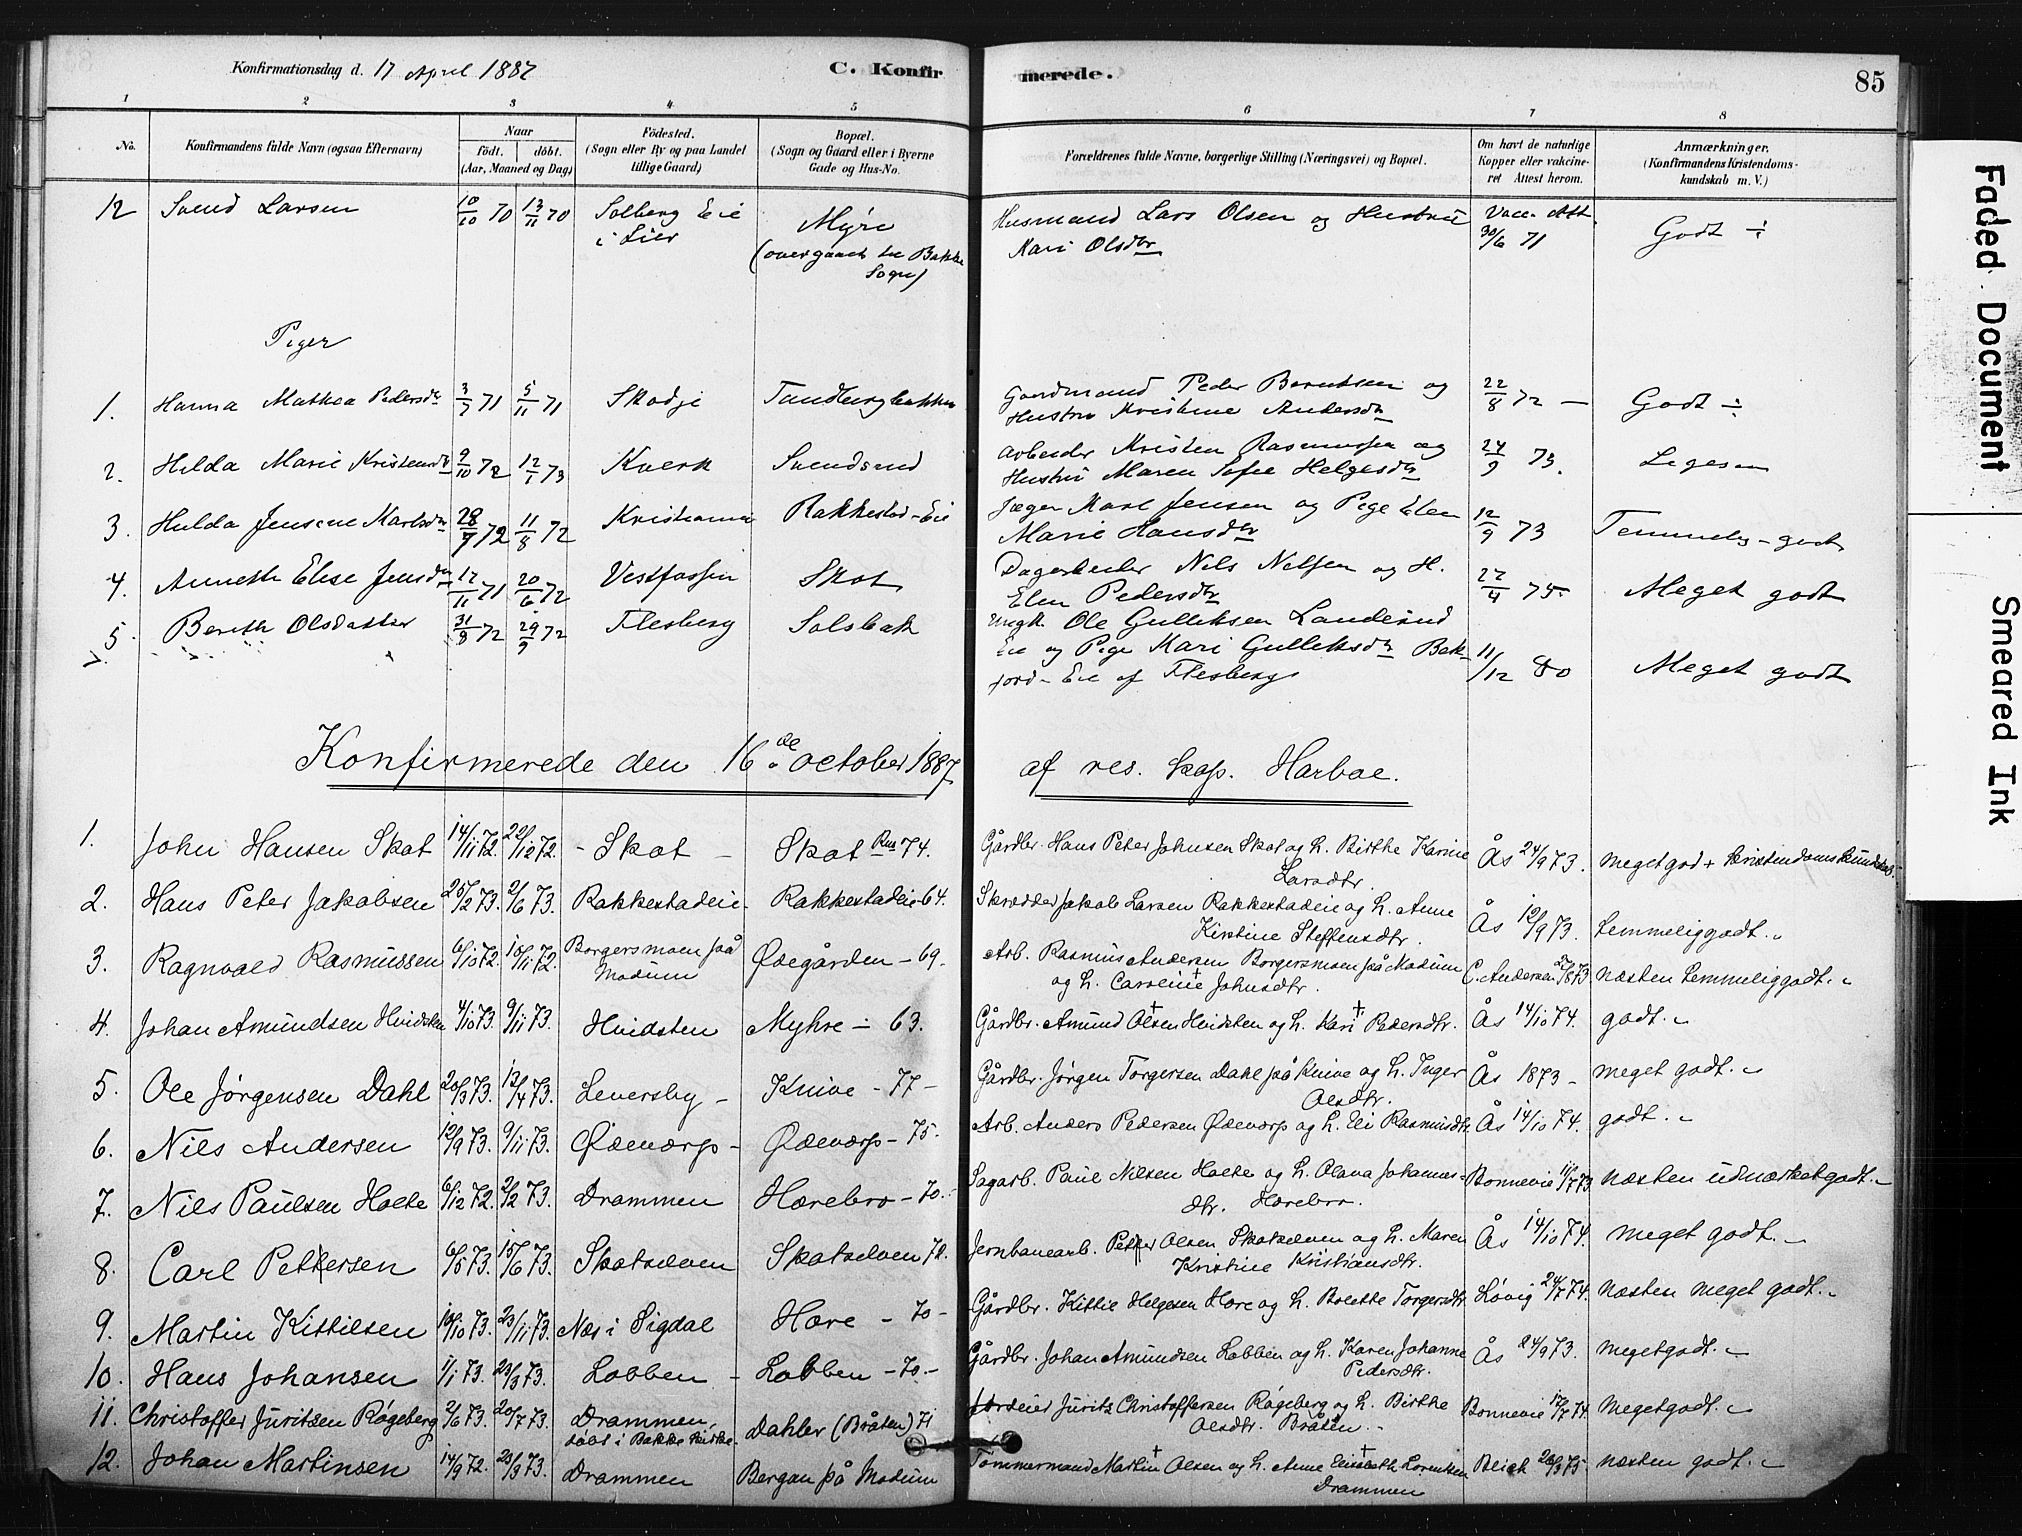 Konfirmationsdag d. 17 April 1887 C. Konfirmerede. 85
1 2 3 4 5 6 7 8
No. Konfirmandens fulde Navn (ogsaa Efternavn) Naar födt. döbt. (Aar, Maaned og Dag) Födested. (Sogn eller By og paa Landet tillige Gaard) Bopæl. (Sogn og Gaard eller i Byerne Gade og Hus-No. Forældrenes fulde Navne, borgerlige Stilling (Næringsvei) og Bopæl. Om havt de naturlige Kopper eller vakcineret Attest herom. Anmærkninger. (Konfirmandens Kristendomskundskab m. V.)
12 Svend Larsen 10/10 70 13/11 70 Solberg Eie i Lier Myre (overgaaet til Bakke Sogn) Husmand Lars Olsen og Hustru Kari Olsdtr Vacc. Att. 30/6 71 Godt ÷
Piger
1. Hanna Mathea Pedersdtr 3/7 71 5/11 71 Skodje Tundbergbakken Gaardmand Peder Berntsen og Hustru Kristine Andersdtr 22/8 72 — Godt ÷
2. Hilda Marie Kristensdtr 9/10 72 12/1 73 Kverk Svendsrud Arbeider Kristen Rasmussen og Hustru Maren Sofie Helgesdtr 24/9 73. Ligesaa
3. Hulda Jensene Karlsdtr 28/7 72 11/8 72 Kristiania Rakkestad-Eie Jæger Karl Jensen og Pige Elen Marie Hansdtr 12/9 73 Temmelig-godt
4. Anneth Elise Jensdtr 12/11 71 20/6 72 Vestfossen Skot Dagarbeider Nils Nilsen og H. Elen Pedersdtr 27/4 75 Meget godt
5. Berith Olsdatter 31/8 72 29/9 72 Flesberg Solsbak Ungk. Ole Gulliksen Landerud Eie og Pige Kari Gulliksdtr Bakjord-Eie af Flesberg 11/12 80 Meget godt
Konfirmerede den 16de october 1887 af res. Kap. Harboe.
1. John Hansen Skot 14/11 72. 22/12 72. - Skot - Skot Rus 74. Gårdbr. Hans Peter Johnsen Skot og h. Birthe Karine Larsdtr. Ås 24/9 73. meget god + Kristendomskundskab.
2. Hans Peter Jakobsen 25/2 73. 2/6 73. Rakkestadeie- Rakkestadeie-64. Skrædder Jakob Larsen Rakkestadeie og h. Anne Kirstine Steffensdtr. Ås 12/9 73. temmeliggodt. "
3. Ragnvald Rasmussen 6/10 72. 10/11 72. Borgersmoen på Modum Ødegården - 69. Arb. Rasmus Andersen Borgersmoen på Modum og h. Caroline + Johnsdtr. C. Andersen 27/8 73. næsten temmeliggodt. "
4. Johan Amundsen Hvidsten 4/10 73. 9/11 73. Hvidsten Myhre - 63. Gårdbr. Amund + Olsen Hvidsten og h. Kari + Pedersdtr. Ås 14/10 74. godt. "
5. Ole Jørgensen Dahl 20/3 73. 13/4 73. Leversby - Knive - 77 - Gårdbr. Jørgen Torgersen Dahl på Knive og h. Inger Olsdtr. Ås 1873 - meget godt. "
6. Nils Andersen 12/9 73. 9/11 73. Ødevarp - Ødevarp - 75. Arb. Anders Pedersen Ødevarp og h. Eli Rasmusdtr. Ås 14/10 74. godt. "
7. Nils Paulsen Holte 6/12 72. 2/2 73. Drammen Horebro - 70. - Sagarb. Paul Nilsen Holte og h. Olava Johannesdtr. Horebro. Bonnevie 11/7 73 næsten udmærketgodt. "
8. Carl Pettersen 6/5 73. 15/6 73. Skotselven Skotselven 72. Jernbanearb. Petter Olsen Skotselven og h. Maren Kristine Kristiansdtr. Ås 14/10 74. meget godt. "
9. Martin Kittilsen 10/10 73. 23/11 73. Næs i Sigdal Hore - 70 - Gårdbr. Kittil Helgesen Hore og h. Bolette Torgersdtr. Løvig 24/7 74. næsten meget godt. "
10. Hans Johansen 1/1 73. 23/3 73. Lobben - Lobben - 70. - Gårdbr. Johan Amundsen Lobben og h. Karen Johanne Pedersdtr. Ås 24/9 73. megetgodt. "
11. Christoffer Juritsen Røgeberg 2/6 73. 20/7 73. Drammen, døbt i Bakke kirke. Dahler (Bråten) 71 Jordeier Jurits Christoffersen Røgeberg og h. Birthe Olsdtr. Bråten. - Bonnevie 17/7 74. Megetgodt. "
12. Johan Martinsen 14/9 72. 23/3 73. Drammen Bergan på Modum Tømmermand Martin + Olsen og h. Anne Elisabeth + Lorentsen Drammen Bleik 26/3 75. næsten godt. "
Faded Document
Smeared Ink